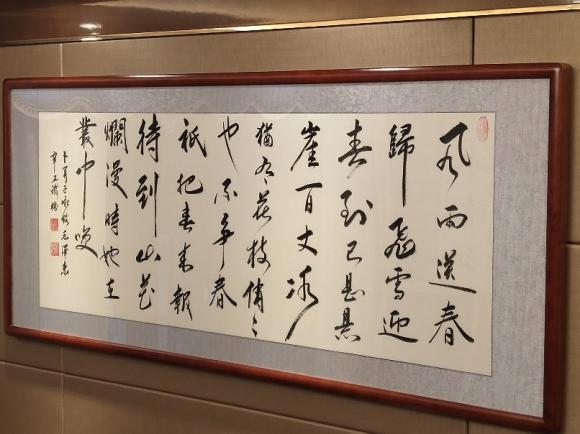 風雨送春
歸飛雪迎
春到已是懸
崖百丈冰
猶有花枝俏〻
也不爭春
祇把春來報
待到山花
爛漫時她在
叢中咲
卜算子咏梅毛澤
辛丑